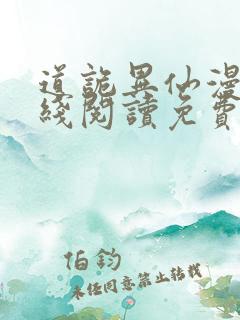 道詭異仙漫
綫閱讀免費
伯鈞
未任同意禁止轉載